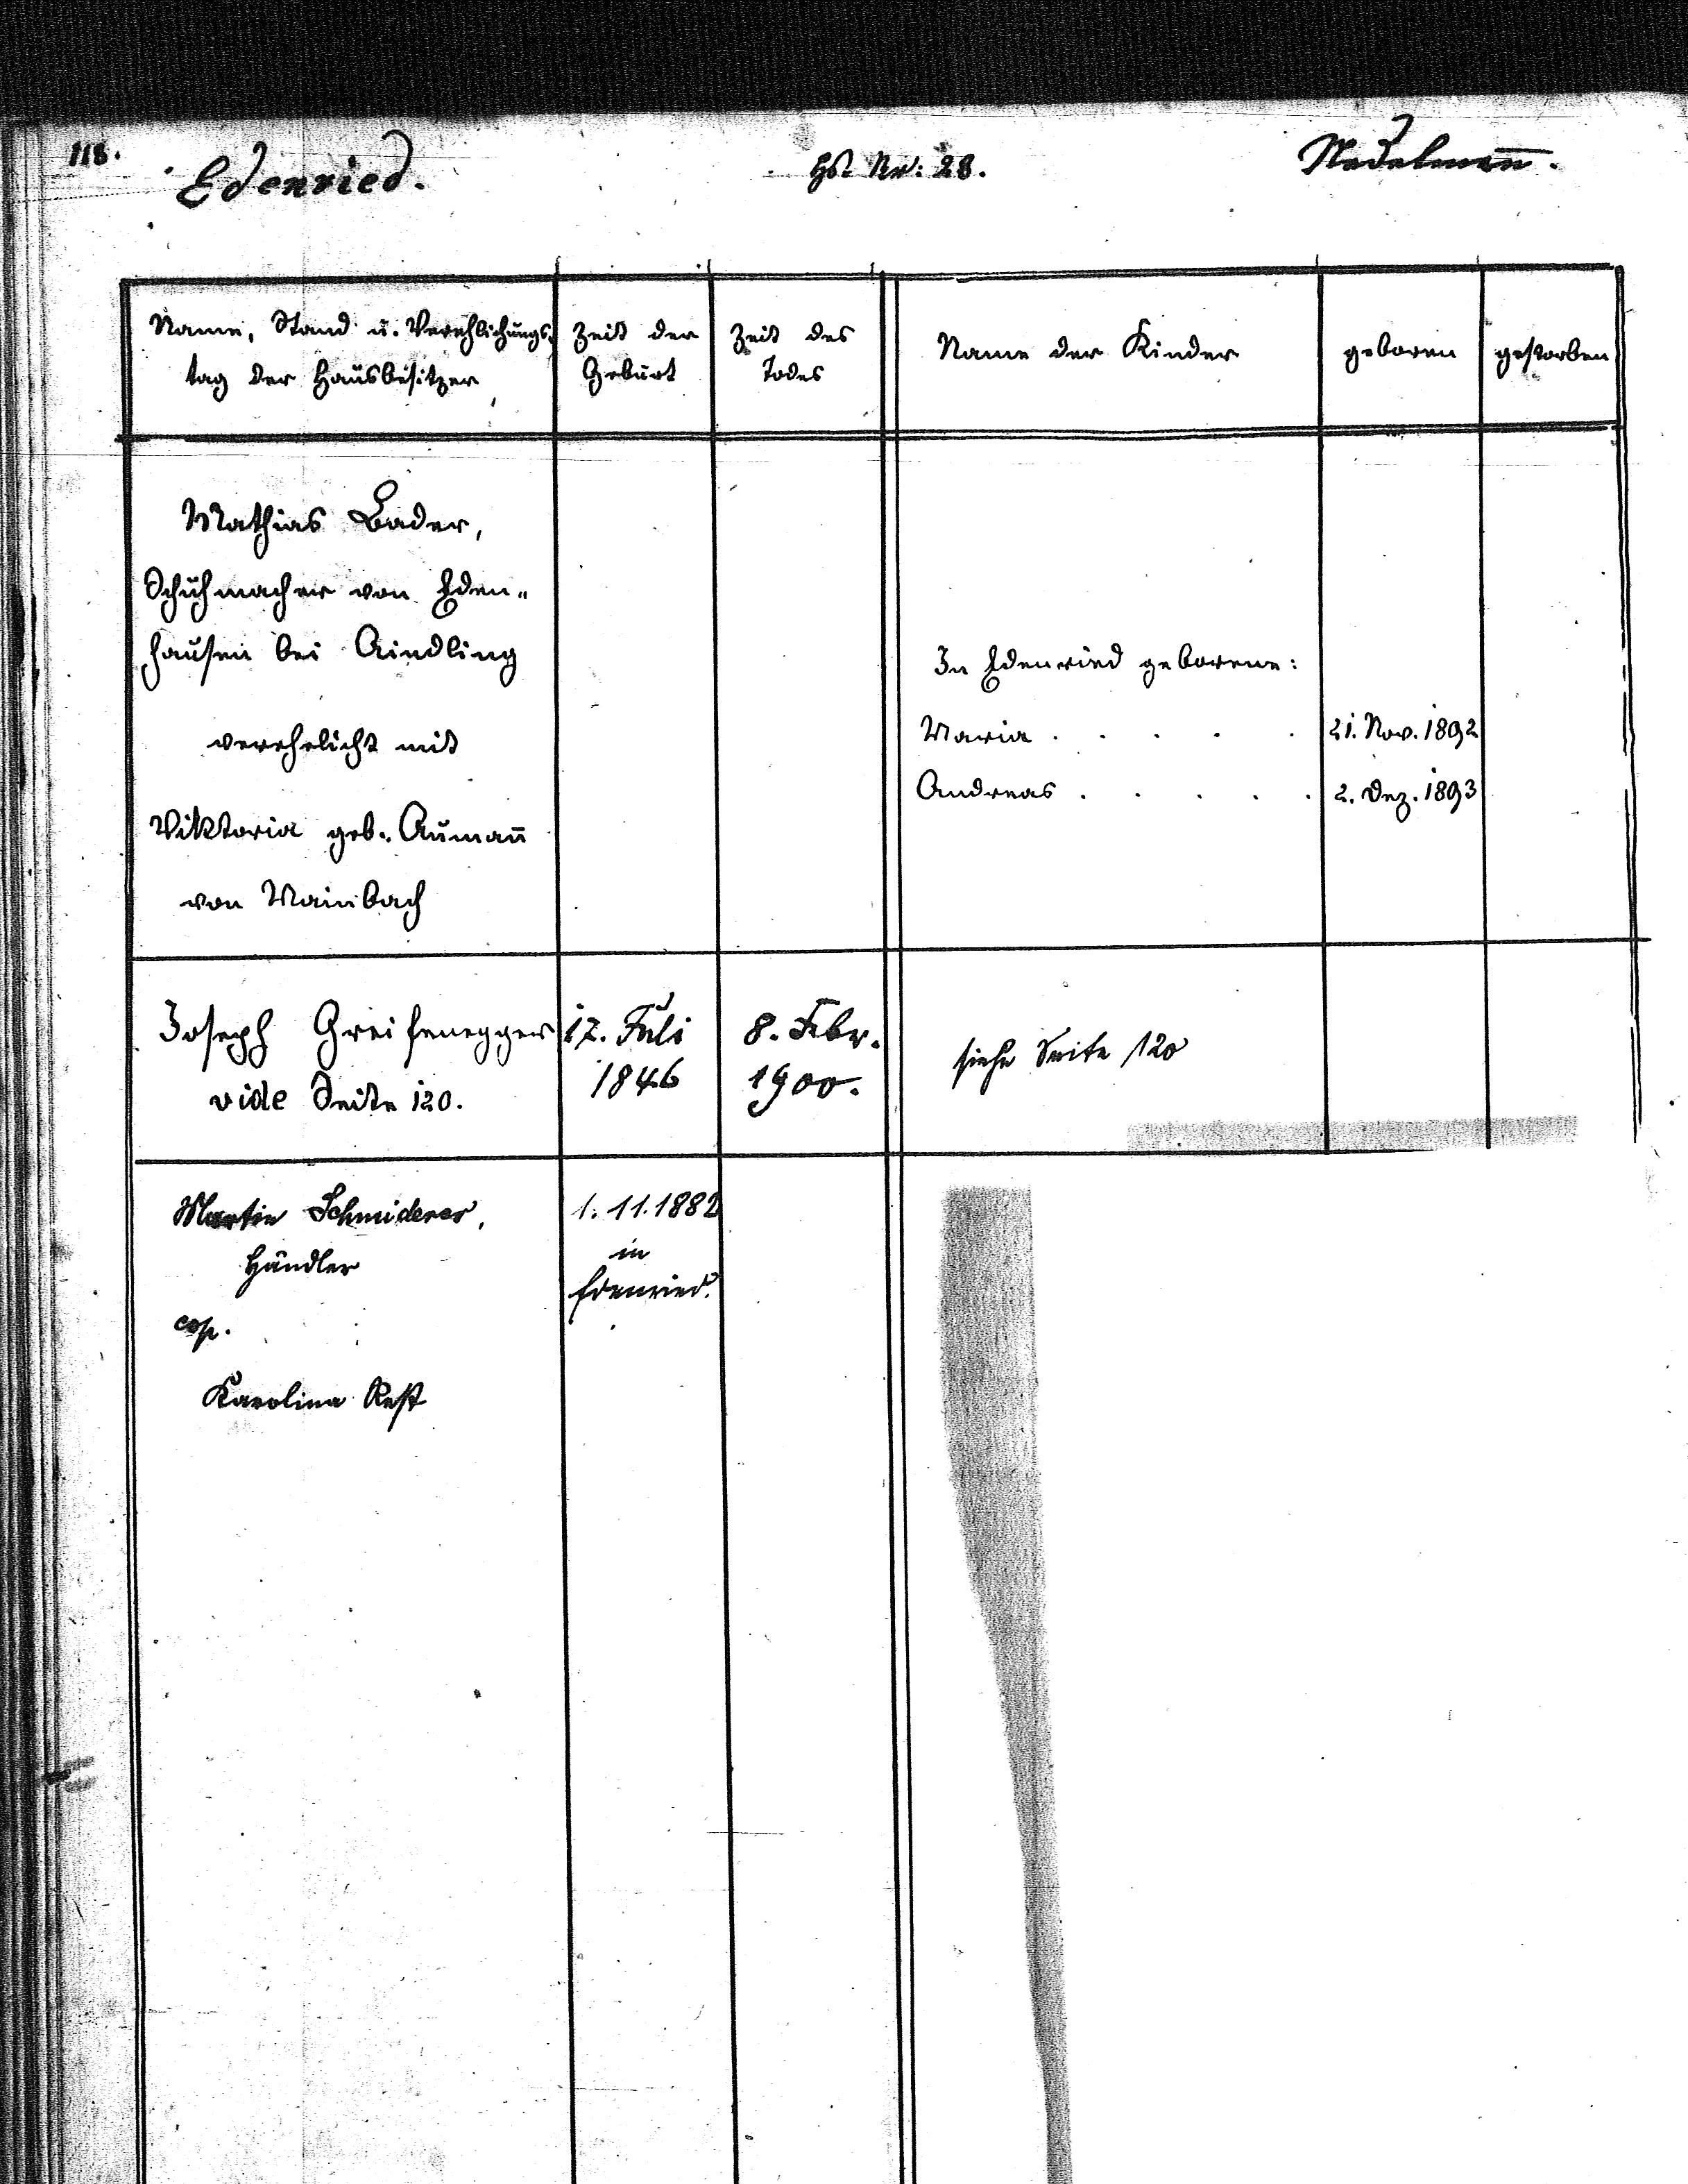 118.
Edenried.
Hs. Nr: 28.
Nadelmañ.
Name, Stand u. Verehlichungs-
tag der Hausbesitzer
Zeit der
Geburt
Zeit des
Todes
Name der Kinder
geboren
gestorben
Mathias Bader,
Schuhmacher von Eden„
hausen bei Aindling
verehelicht mit
Viktoria geb. Aumañ
von Mainbach
In Edenried geborene:
Maria . . . . . 21. Nov. 1892
Andreas . . . . . 2. Dez. 1893
Joseph Greifenegger
vide Seite 120.
17. Juli
1846
8. Febr.
1900.
siehe Seite 120
Martin Schmiderer,
Händler
cop.
Karolina Rest
1. 11. 1882
in
Edenried.